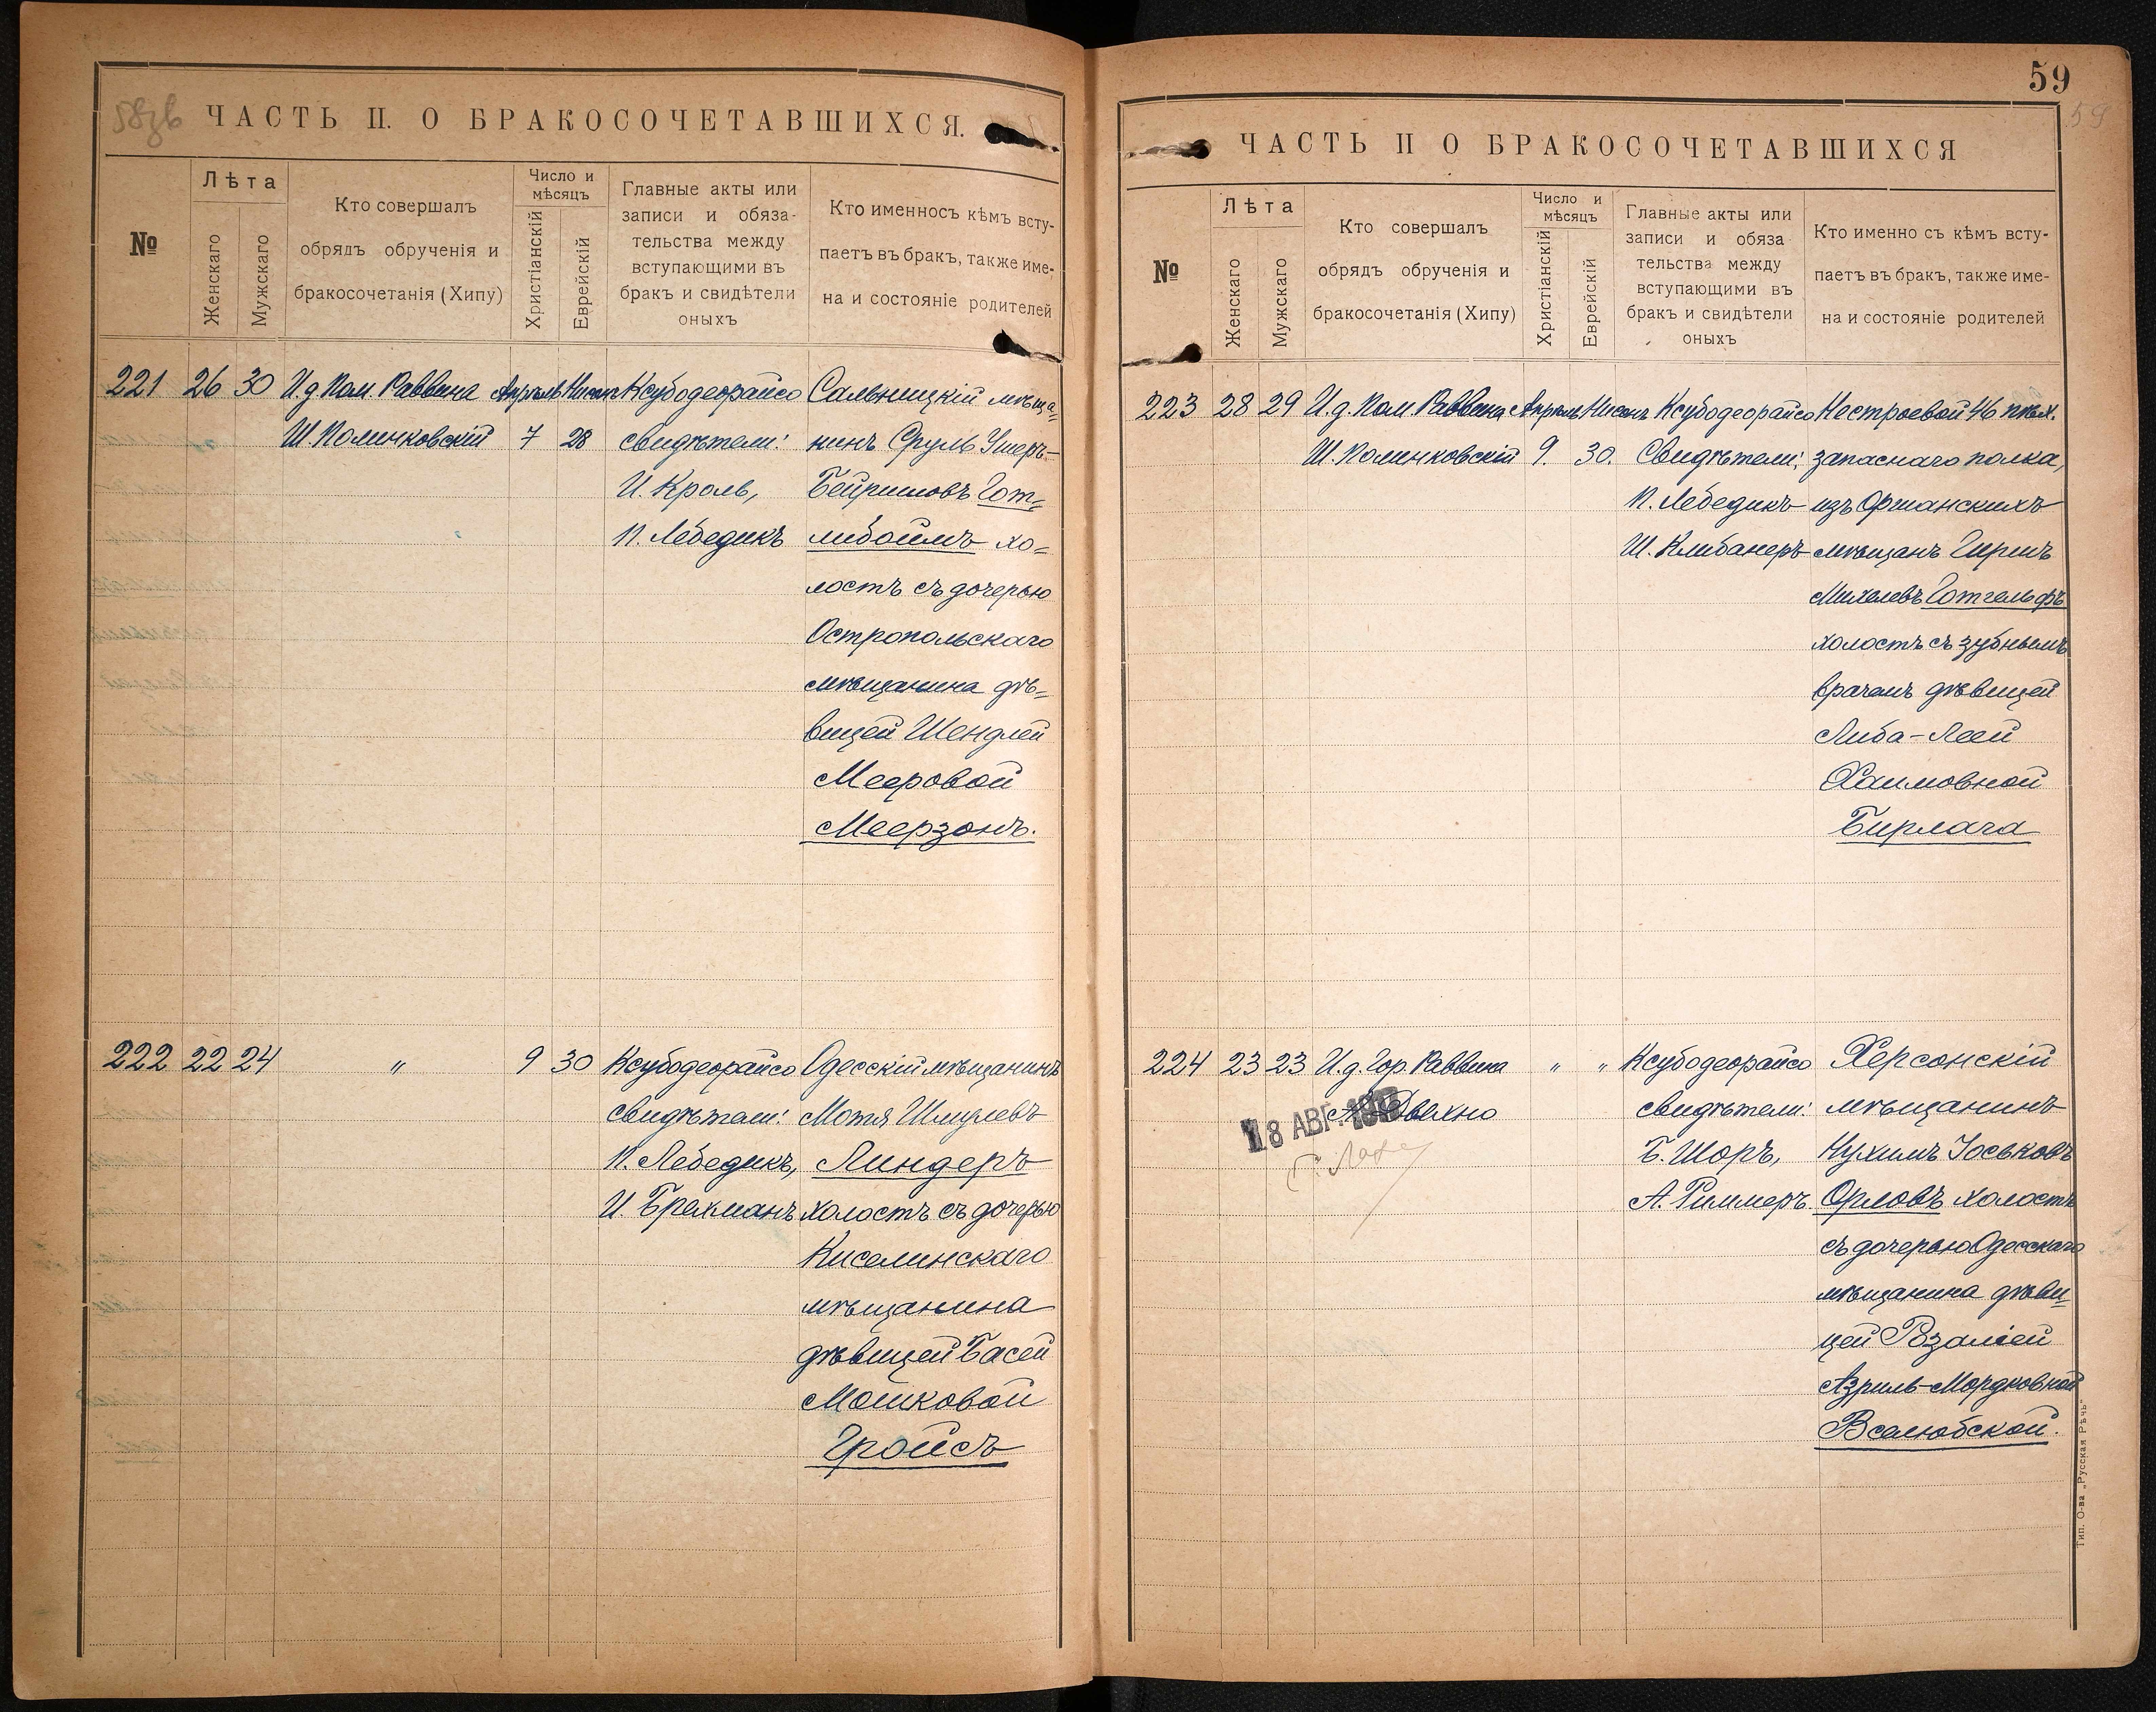 58зв
ЧАСТЬ II. О БРАКОСОЧЕТАВШИХСЯ.
№
Лѣта
Женскаго
Мужскаго
Кто совершалъ
обрядъ обрученія и
бракосочетанія (Хипу)
Число и
мѣсяцъ
Христіанскій
Еврейскій
Главные акты или
записи и обяза-
тельства между
вступающими въ
бракъ и свидѣтели
оныхъ
Кто именносъ кѣмъ всту-
паетъ въ бракъ, также име-
на и состояніе родителей
221 26 30 И.д Пом. Раввина Апрѣль Нисанъ Ксубодеорайсо Сальницкій мѣща-
Ш. Полинковскій 7 28 свидѣтели: нинъ Сруль Умеръ-
И. Кроль, Бейришовъ Гот-
П. Лебедикъ либоймъ хо-
лостъ съ дочерью
Остропольскаго
мѣщанина дѣ-
вицей Шендлей
Мееровой
Меерзонъ.
222 22 24 " 9 30 Ксубодеорайсо Одесскій мѣщанинъ
свидѣтели: Мотя Шмулевъ
П. Лебедикъ, Линдеръ
И. Брехманъ холостъ съ дочерью
Киселинскаго
мѣщанина
дѣвицей Басей
Мошковой
Гройсъ
59
59
ЧАСТЬ II О БРАКОСОЧЕТАВШИХСЯ
№
Лѣта
Женскаго
Мужскаго
Кто совершалъ
обрядъ обрученія и
бракосочетанія (Хипу)
Число и
мѣсяцъ
Христіанскій
Еврейскій
Главные акты или
записи и обяза
тельства между
вступающими въ
бракъ и свидѣтели
оныхъ
Кто именно съ кѣмъ всту-
паетъ въ бракъ, также име-
на и состояніе родителей
223 28 29 И.д. Пом Раввина Апрѣль Нисанъ Ксубодеорайсо Нестроевой 46 пѣх.
Ш. Полинковскій 9. 30. Свидѣтели: запаснаго полка,
П. Лебедикъ изъ Оршанскихъ
Ш. Клибанеръ мѣщанъ Гиршъ
Михелевъ Готгельфъ
холостъ съ зубнымъ
врачемъ дѣвицей
Либа-Леей
Хаимовной
Бирлача
224 23 23 И.д. Гор. Раввина " " Ксубодеорайсо Херсонскій
А. Двехно свидѣтели: мѣщанинъ
18 АВГ.
Б. Шоръ, Нухимъ Іоськовъ
А. Риммеръ. Орловъ холостъ
съ дочерью Одесскаго
мѣщанина дѣви-
цей Розаліей
Азриль-Мордковной
Вселюбской.
Тип. О-ва „Русская Рѣчь"